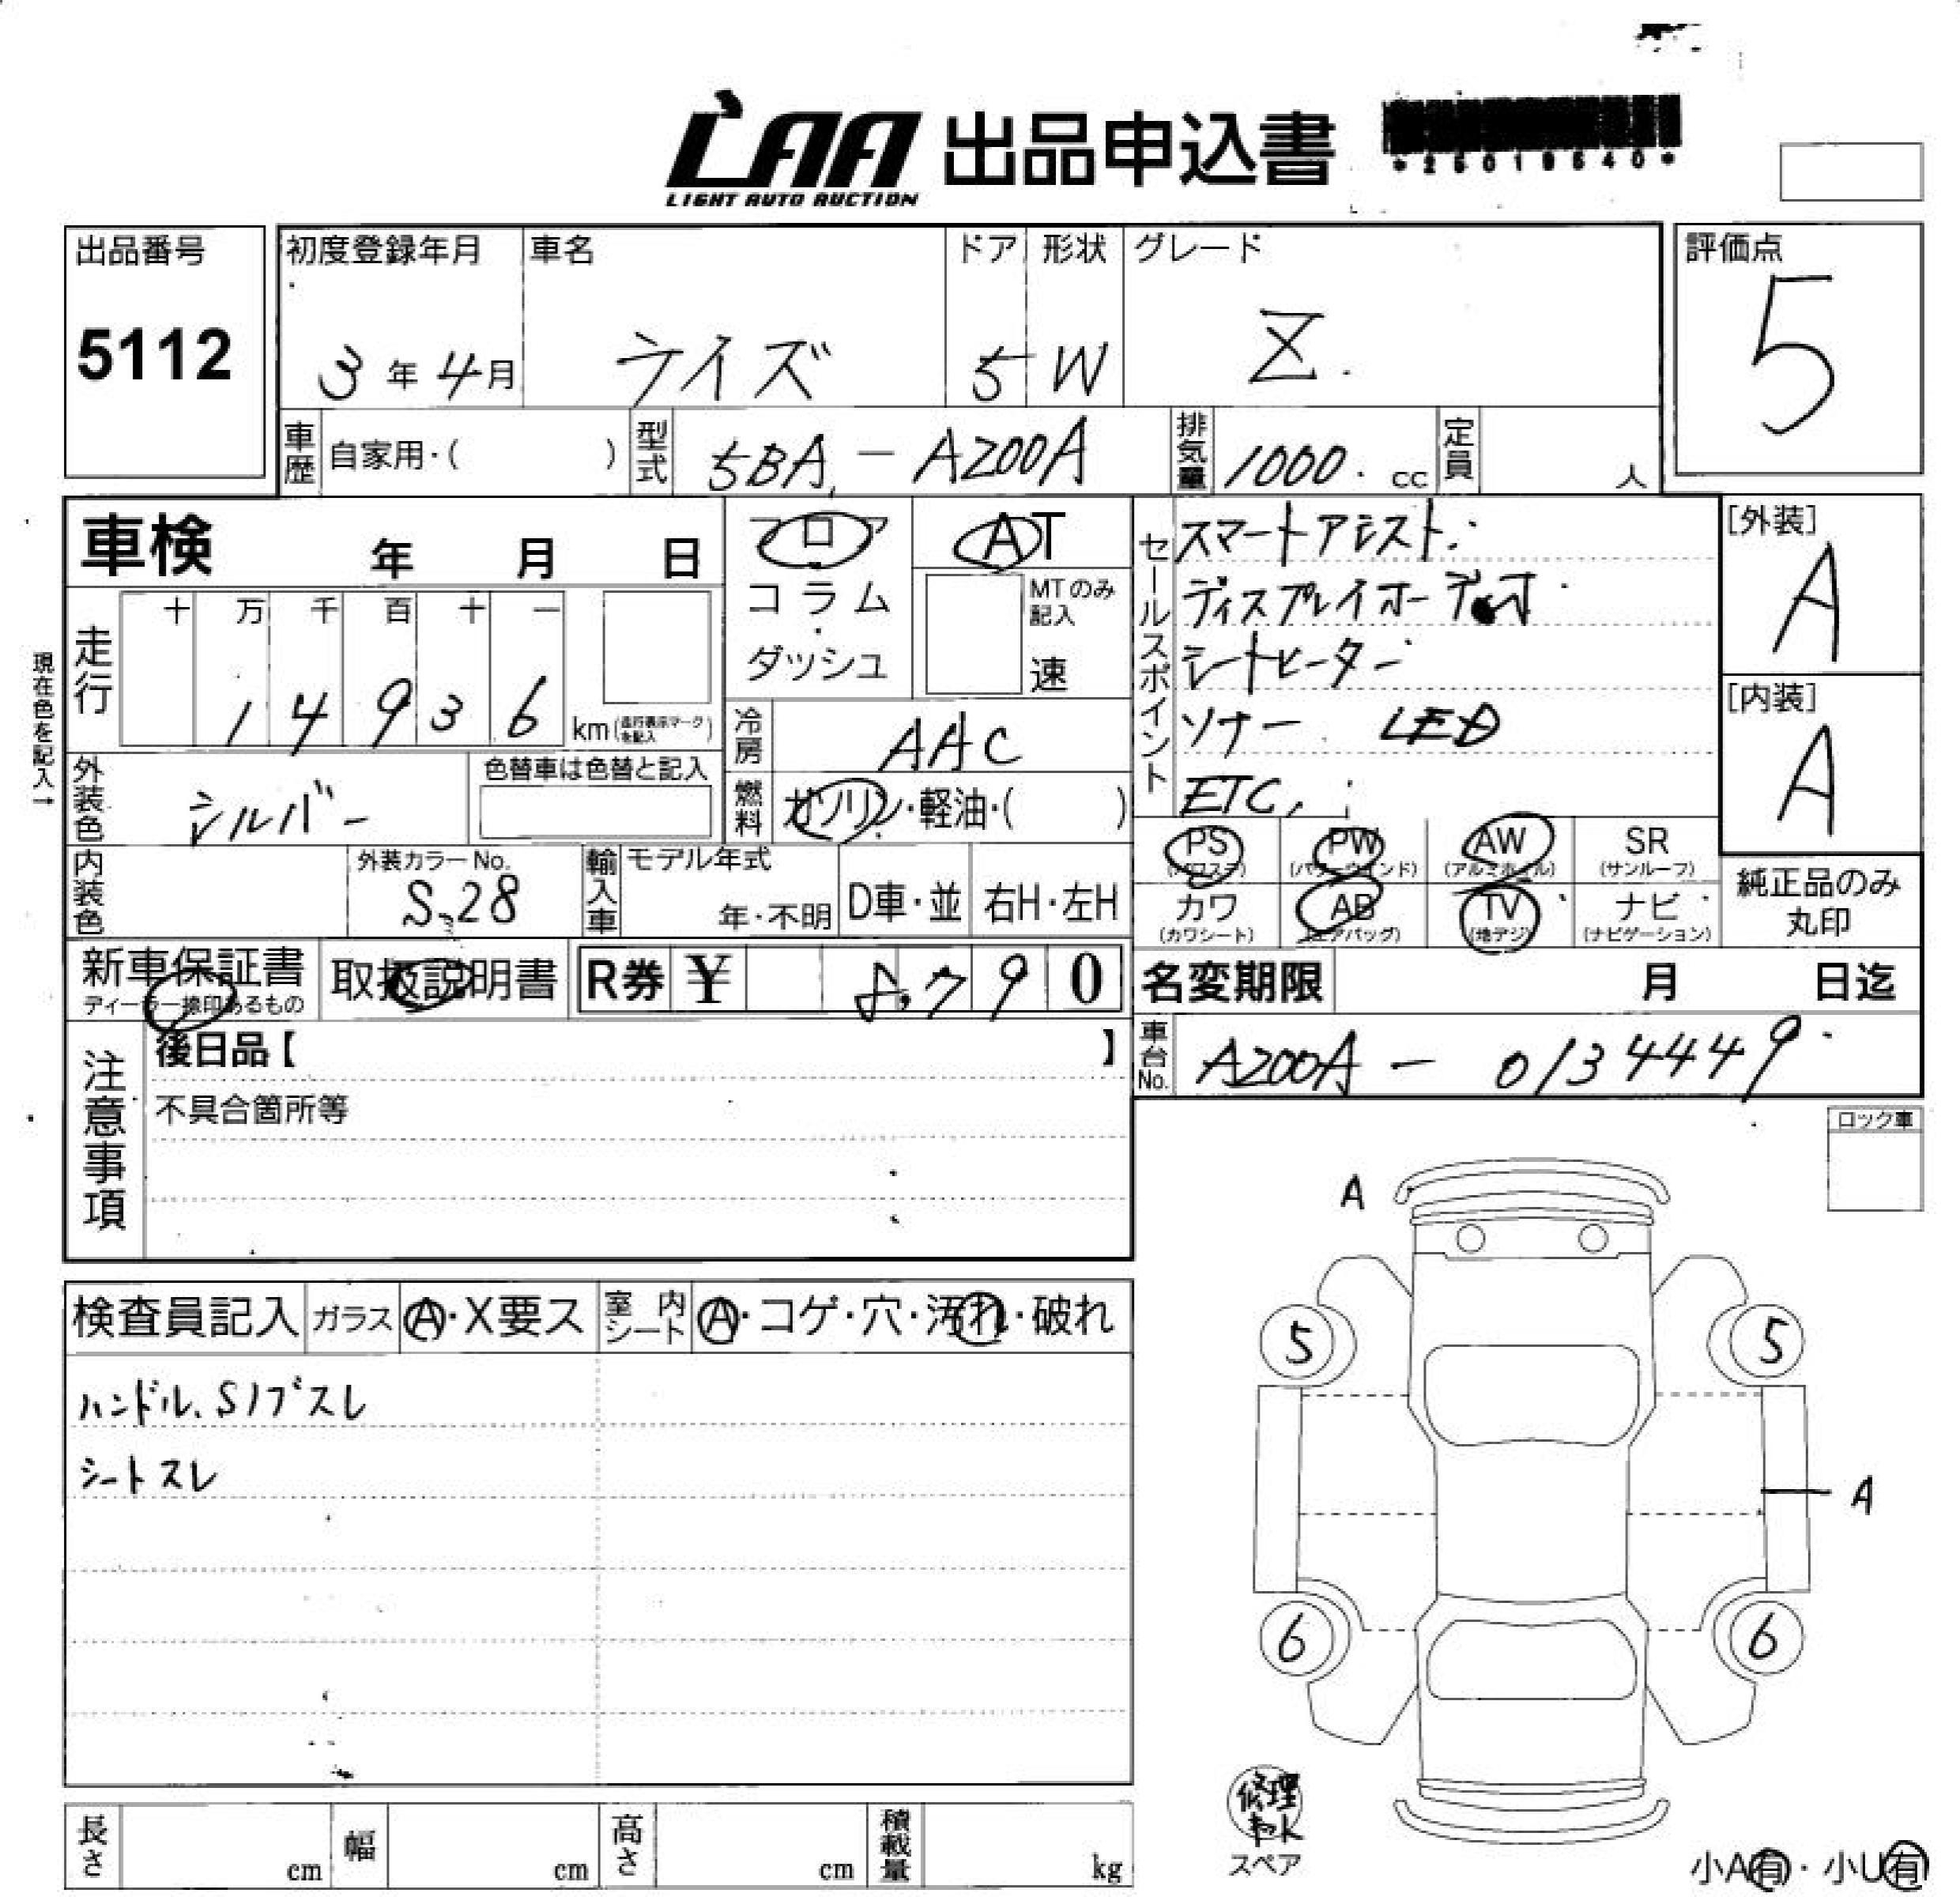 LAA 出品申込書
LIGHT AUTO AUCTION
*25019540*
出品番号
5112
初度登録年月
3年4月
車名
ライズ
ドア
5
形状
W
グレード
Z
評価点
5
車歴
自家用・( )
型式
5BA-A200A
排気量
1000. cc
定員
人
車検 年 月 日
フロア
コラム
ダッシュ
AT
MTのみ
記入
速
セールスポイント
スマートアシスト
ディスプレイオーディオ
シートヒーター
ソナー LED
ETC
[外装]
A
[内装]
A
現在色を記入→
走行
十 万 千 百 十 一
1 4 9 3 6
km(走行表示マークを記入)
冷房
AAC
燃料
ガソリン・軽油・( )
外装色
シルバー
色替車は色替と記入
内装色
外装カラーNo.
S28
輸入車
モデル年式
年・不明
D車・並
右H・左H
PS
(パワステ)
PW
(パワーウインド)
AW
(アルミホイル)
SR
(サンルーフ)
カワ
(カワシート)
AB
(エアバッグ)
TV
(地デジ)
ナビ
(ナビゲーション)
純正品のみ
丸印
新車保証書
ディーラー捺印あるもの
取扱説明書
R券 ¥ 8,790
名変期限 月 日迄
車台No.
A200A - 0134449
注意事項
後日品【 】
不具合箇所等
ロック車
検査員記入
ガラス
A・X要ス
室内シート
A・コゲ・穴・汚れ・破れ
ハンドル、Sノブスレ
シートスレ
A
5
5
A
6
6
修理
キット
スペア
小A有・小U有
長さ
cm
幅
cm
高さ
cm
積載量
kg